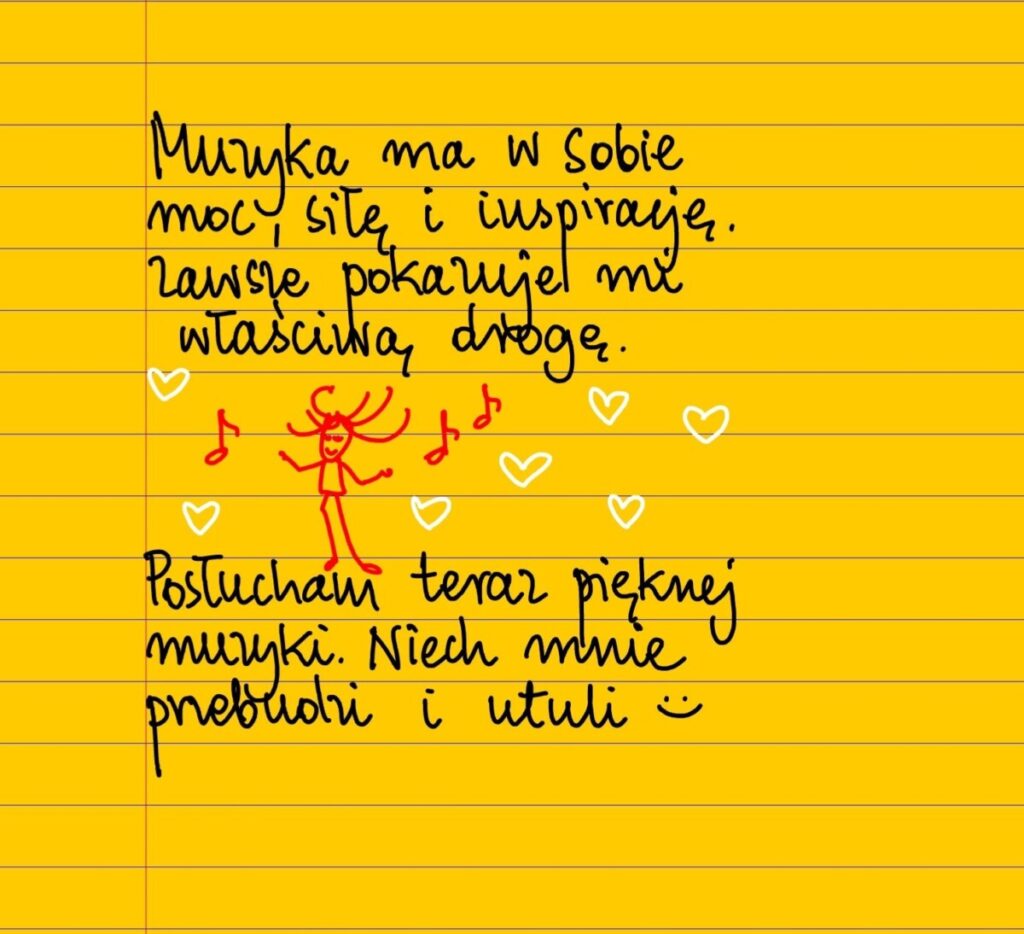 Muzyka ma w sobie
moc, siłę i inspirację.
Zawsze pokazuje mi
właściwą drogę.
Posłucham teraz pięknej
muzyki. Niech mnie
przebudzi i utuli :)